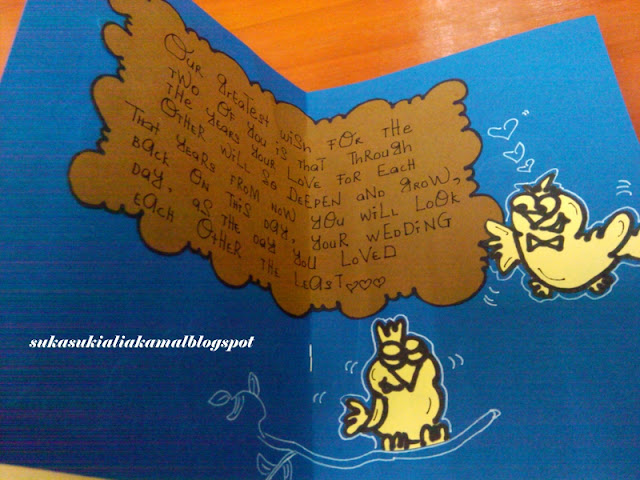 OUR GREATEST WISH FOR THE
TWO OF YOU IS THAT THROUGH
THE YEARS YOUR LOVE FOR EACH
OTHER WILL SO DEEPEN AND GROW,
THAT YEARS FROM NOW YOU WILL LOOK
BACK ON THIS DAY, YOUR WEDDING
DAY, AS THE DAY YOU LOVED
EACH OTHER THE LEAST♡♡♡
sukasukialiakamalblogspot